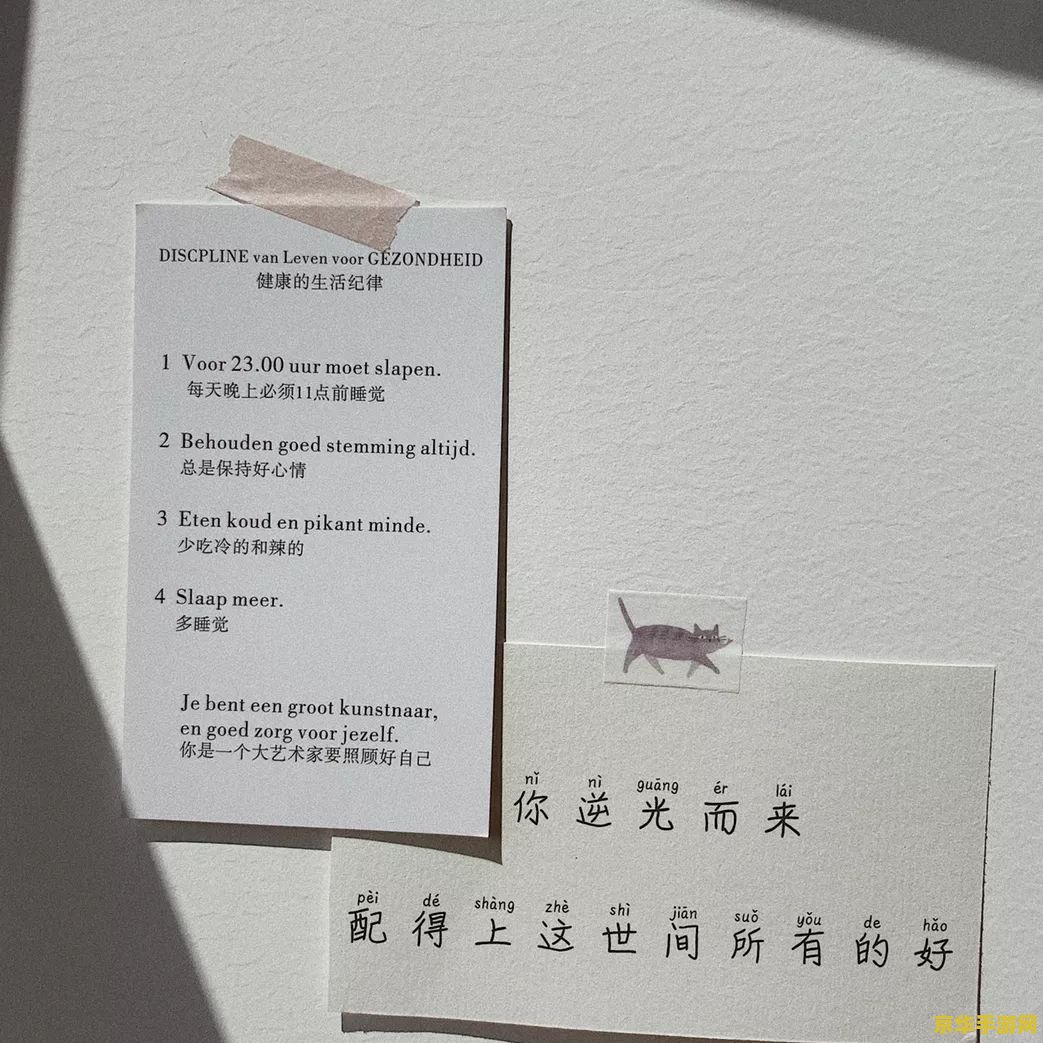 DISCPLINE van Leven voor GEZONDHEID
健康的生活纪律
1 Voor 23.00 uur moet slapen.
每天晚上必须11点前睡觉
2 Behouden goed stemming altijd.
总是保持好心情
3 Eten koud en pikant minde.
少吃冷的和辣的
4 Slaap meer.
多睡觉
Je bent een groot kunstnaar,
en goed zorg voor jezelf.
你是一个大艺术家要照顾好自己
nǐ nì guāng ér lái
你逆光而来
pèi dé shàng zhè shì jiān suǒ yǒu de hǎo
配得上这世间所有的好
京华手游网